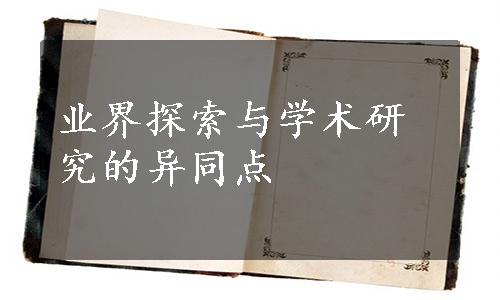 业界探索与学术研
究的异同点